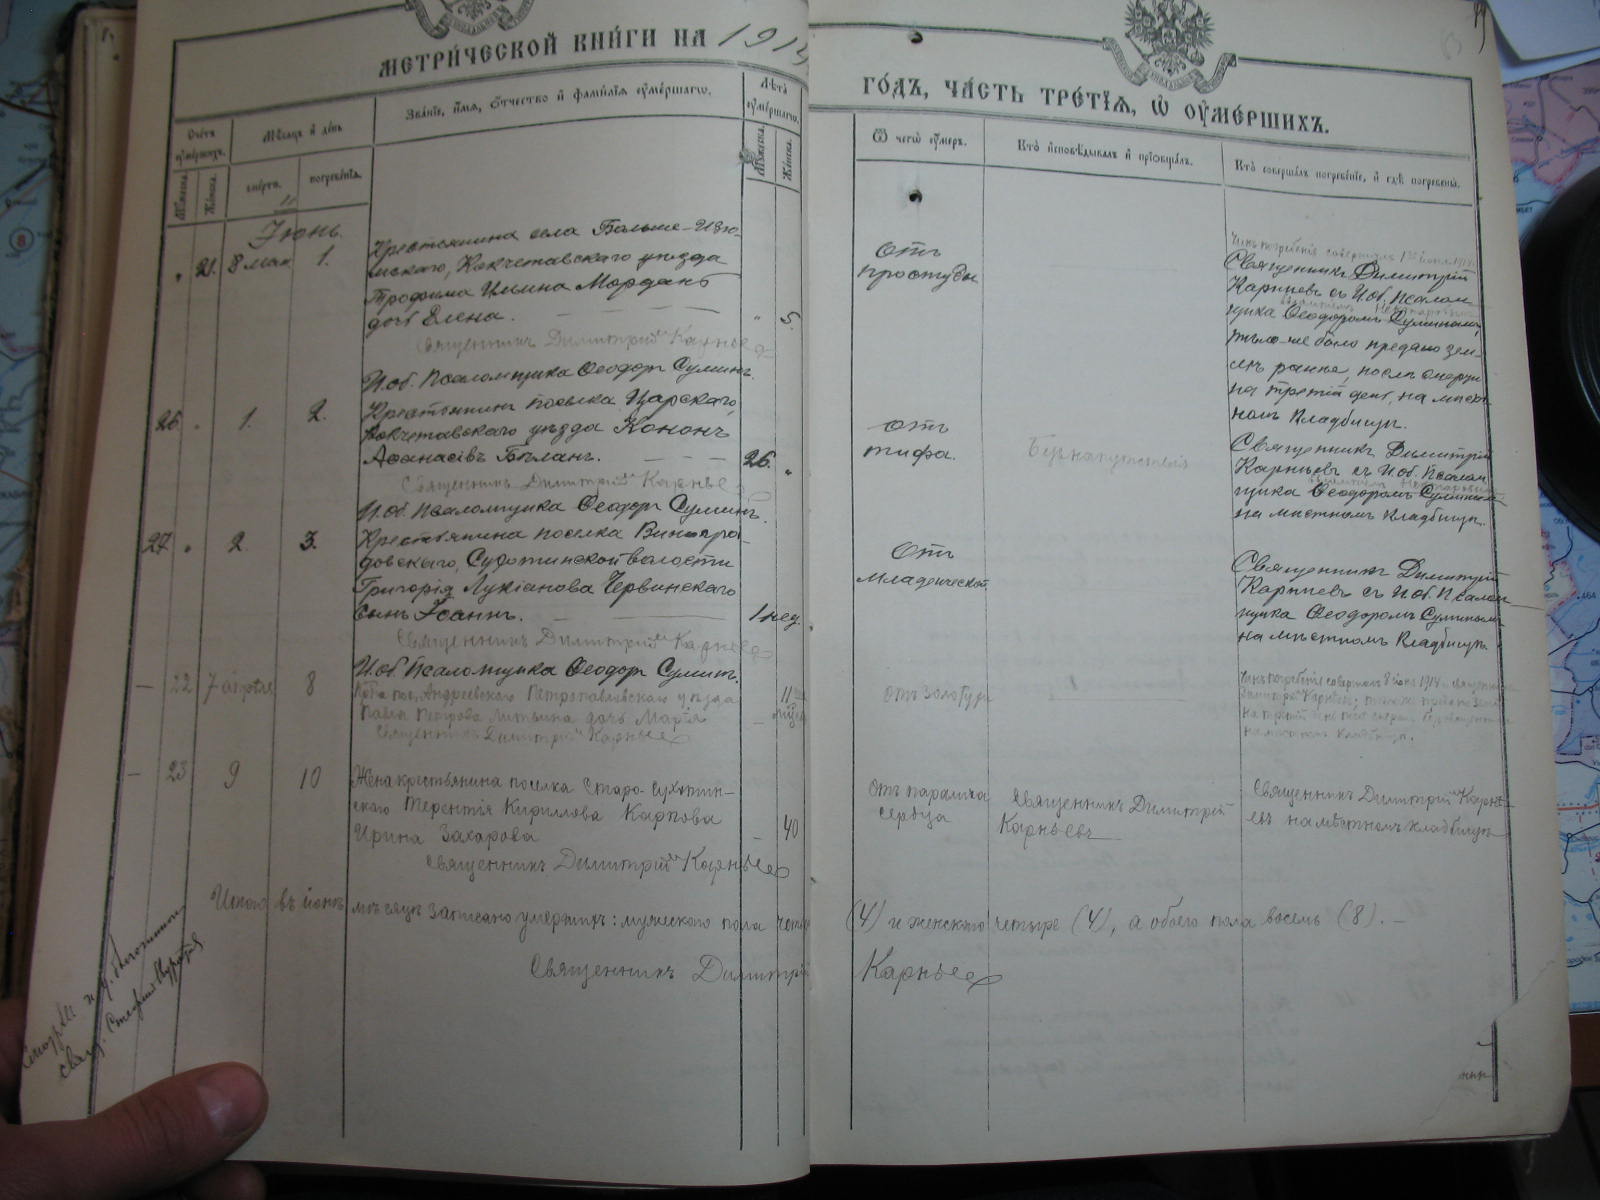 МЕТРИ́ЧЕСКОЙ КНИ́ГИ НА 1914
ГО́ДЪ, ЧА́СТЬ ТРЕ́ТІѦ, Ѡ ОУМЕ́РШИХЪ.
Счетъ оумершихъ.
Мѣсяцъ и день
Званіе, имя, отчество и фамилія оумершагѡ.
Лѣта оумершагѡ.
Ѿ чегѡ оумеръ.
Кто исповѣдывалъ и пріобщалъ.
Кто совершалъ погребеніе, и гдѣ погребены.
Мужеска.
Женска.
смерти.
погребенія.
Мужеска.
Женска.
Іюнь.
21. 8 мая 1.
Крестьянина села Больше-Изю-
мскаго, Кокчетавскаго уѣзда
Трофима Ильина Мордань
дочь Елена. 5.
Священникъ Димитрій Карнѣев
И.об. Псаломщика Ѳеодоръ Суминъ.
отъ
простуды
Чинъ погребенія совершилъ 1го іюня 1914
Священникъ Димитрій
Карнѣевъ съ И.об. Псалом-
щика Ѳеодоромъ Суминымъ,
тѣло-же было предано зем-
лѣ ранѣе, послѣ смерти
на третій день, на мѣст-
номъ кладбищѣ.
26 1. 2.
Крестьянинъ поселка Царскаго,
Кокчетавскаго уѣзда Кононъ
Аѳанасіевъ Бѣланъ. 26.
Священникъ Димитрій Карнѣев
И.об. Псаломщика Ѳеодоръ Суминъ.
отъ
тифа.
Безъ напутствія
Священникъ Димитрій
Карнѣевъ съ И.об. Псалом-
щика Ѳеодоромъ Суминымъ
на мѣстномъ кладбищѣ.
27 2. 3.
Крестьянина поселка Виногра-
довскаго, Сухотинской волости
Григорія Лукіанова Червинскаго
сынъ Іоаннъ. 1 нед.
Священникъ Димитрій Карнѣев
И.об. Псаломщика Ѳеодоръ Суминъ.
Отъ
младенческой
Священникъ Димитрій
Карнѣевъ съ И.об. Псалом-
щика Ѳеодоромъ Суминымъ
на мѣстномъ кладбищѣ.
22 7 апрѣля 8
Андреевскаго Петропавловскаго уѣзда
Павла Петрова Литвина дочь Марія
Священникъ Димитрій Карнѣев
11
отъ золотухи
Чинъ погребенія совершилъ 8 іюня 1914 г. священникъ
Димитрій Карнѣевъ;
на мѣстномъ кладбищѣ.
23 9 10
Жена крестьянина поселка Старо-Сухотин-
скаго Терентія Кириллова Карпова
Ирина Захарова 40
Священникъ Димитрій Карнѣев
отъ паралича
сердца
Священникъ Димитрій
Карнѣевъ
Священникъ Димитрій Карнѣ-
евъ на мѣстномъ кладбищѣ
Итого въ іюнѣ мѣсяцѣ записано умершихъ: мужескаго пола четы (4) и женскаго четыре (4), а обоего пола восемь (8). —
Священникъ Димитрій Карнѣев